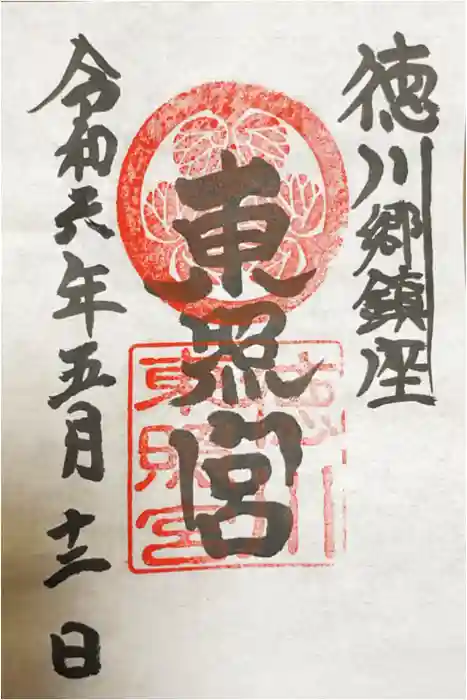 徳川郷鎮座
東照宮
令和六年五月十二日
徳川
東照宮